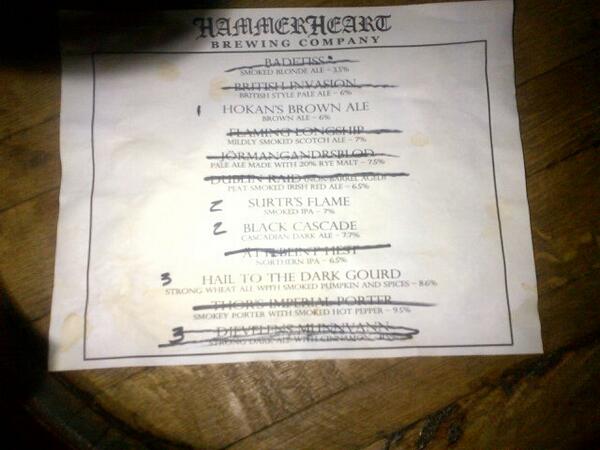 HAMMERHEART
BREWING COMPANY
BADETISS
SMOKED BLONDE ALE ~ 3.5%
BRITISH INVASION
BRITISH STYLE PALE ALE ~ 6%
1 HOKAN'S BROWN ALE
BROWN ALE ~ 6%
FLAMING LONGSHIP
MILDLY SMOKED SCOTCH ALE ~ 7%
JÖRMANGANDRSBLOD
PALE ALE MADE WITH 20% RYE MALT ~ 7.5%
DUBLIN RAID (NON-BARREL AGED)
PEAT SMOKED IRISH RED ALE ~ 6.5%
2 SURTR'S FLAME
SMOKED IPA ~ 7%
2 BLACK CASCADE
CASCADIAN DARK ALE ~ 7.7%
HEST
NORTHERN IPA ~ 6.5%
3 HAIL TO THE DARK GOURD
STRONG WHEAT ALE WITH SMOKED PUMPKIN AND SPICES ~ 8.6%
THOR'S IMPERIAL PORTER
SMOKEY PORTER WITH SMOKED HOT PEPPER ~ 9.5%
3 DJEVELENS MUNNVANN
STRONG DARK ALE WITH CINNAMON